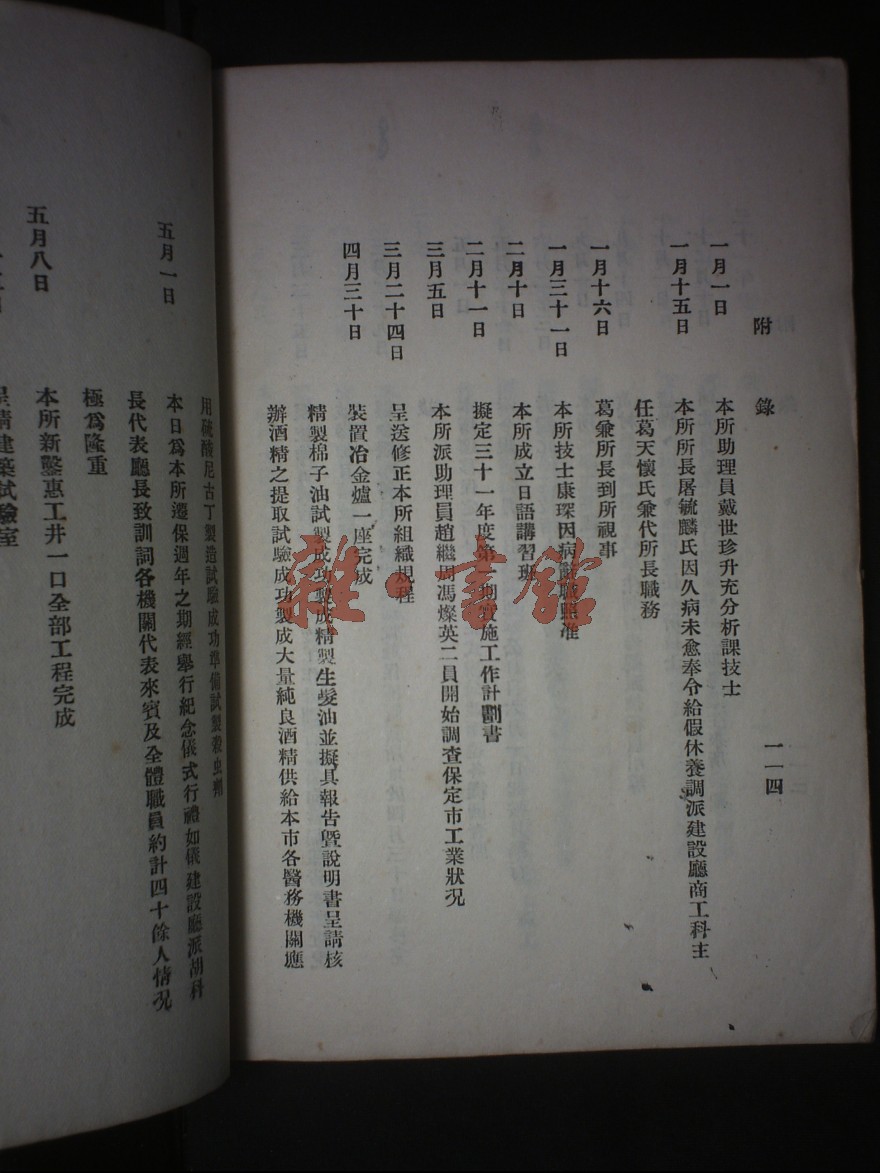 附錄 一一四
一月一日 本所助理員戴世珍升充分析課技士
一月十五日 本所所長屠毓麟氏因久病未愈奉令給假休養調派建設廳商工科主
任葛天懷氏兼代所長職務
一月十六日 葛兼所長到所視事
一月三十一日 本所技士康琛因病辭職照准
二月十日 本所成立日語講習班
二月十一日 擬定三十一年度第一期實施工作計劃書
三月五日 本所派助理員趙繼周馮燦英二員開始調查保定市工業狀况
三月二十四日 呈送修正本所組織規程
四月三十日 裝置冶金爐一座完成
精製棉子油試製成功製成精製生髮油並擬具報告暨說明書呈請核
辦酒精之提取試驗成功製成大量純良酒精供給本市各醫務機關應
用硫酸尼古丁製造試驗成功準備試製殺虫劑
五月一日 本日爲本所遷保週年之期經舉行紀念儀式行禮如儀建設廳派胡科
長代表廳長致訓詞各機關代表來賓及全體職員約計四十餘人情况
極爲隆重
五月八日 本所新鑿惠工井一口全部工程完成
呈請建築試驗室
雜·書館